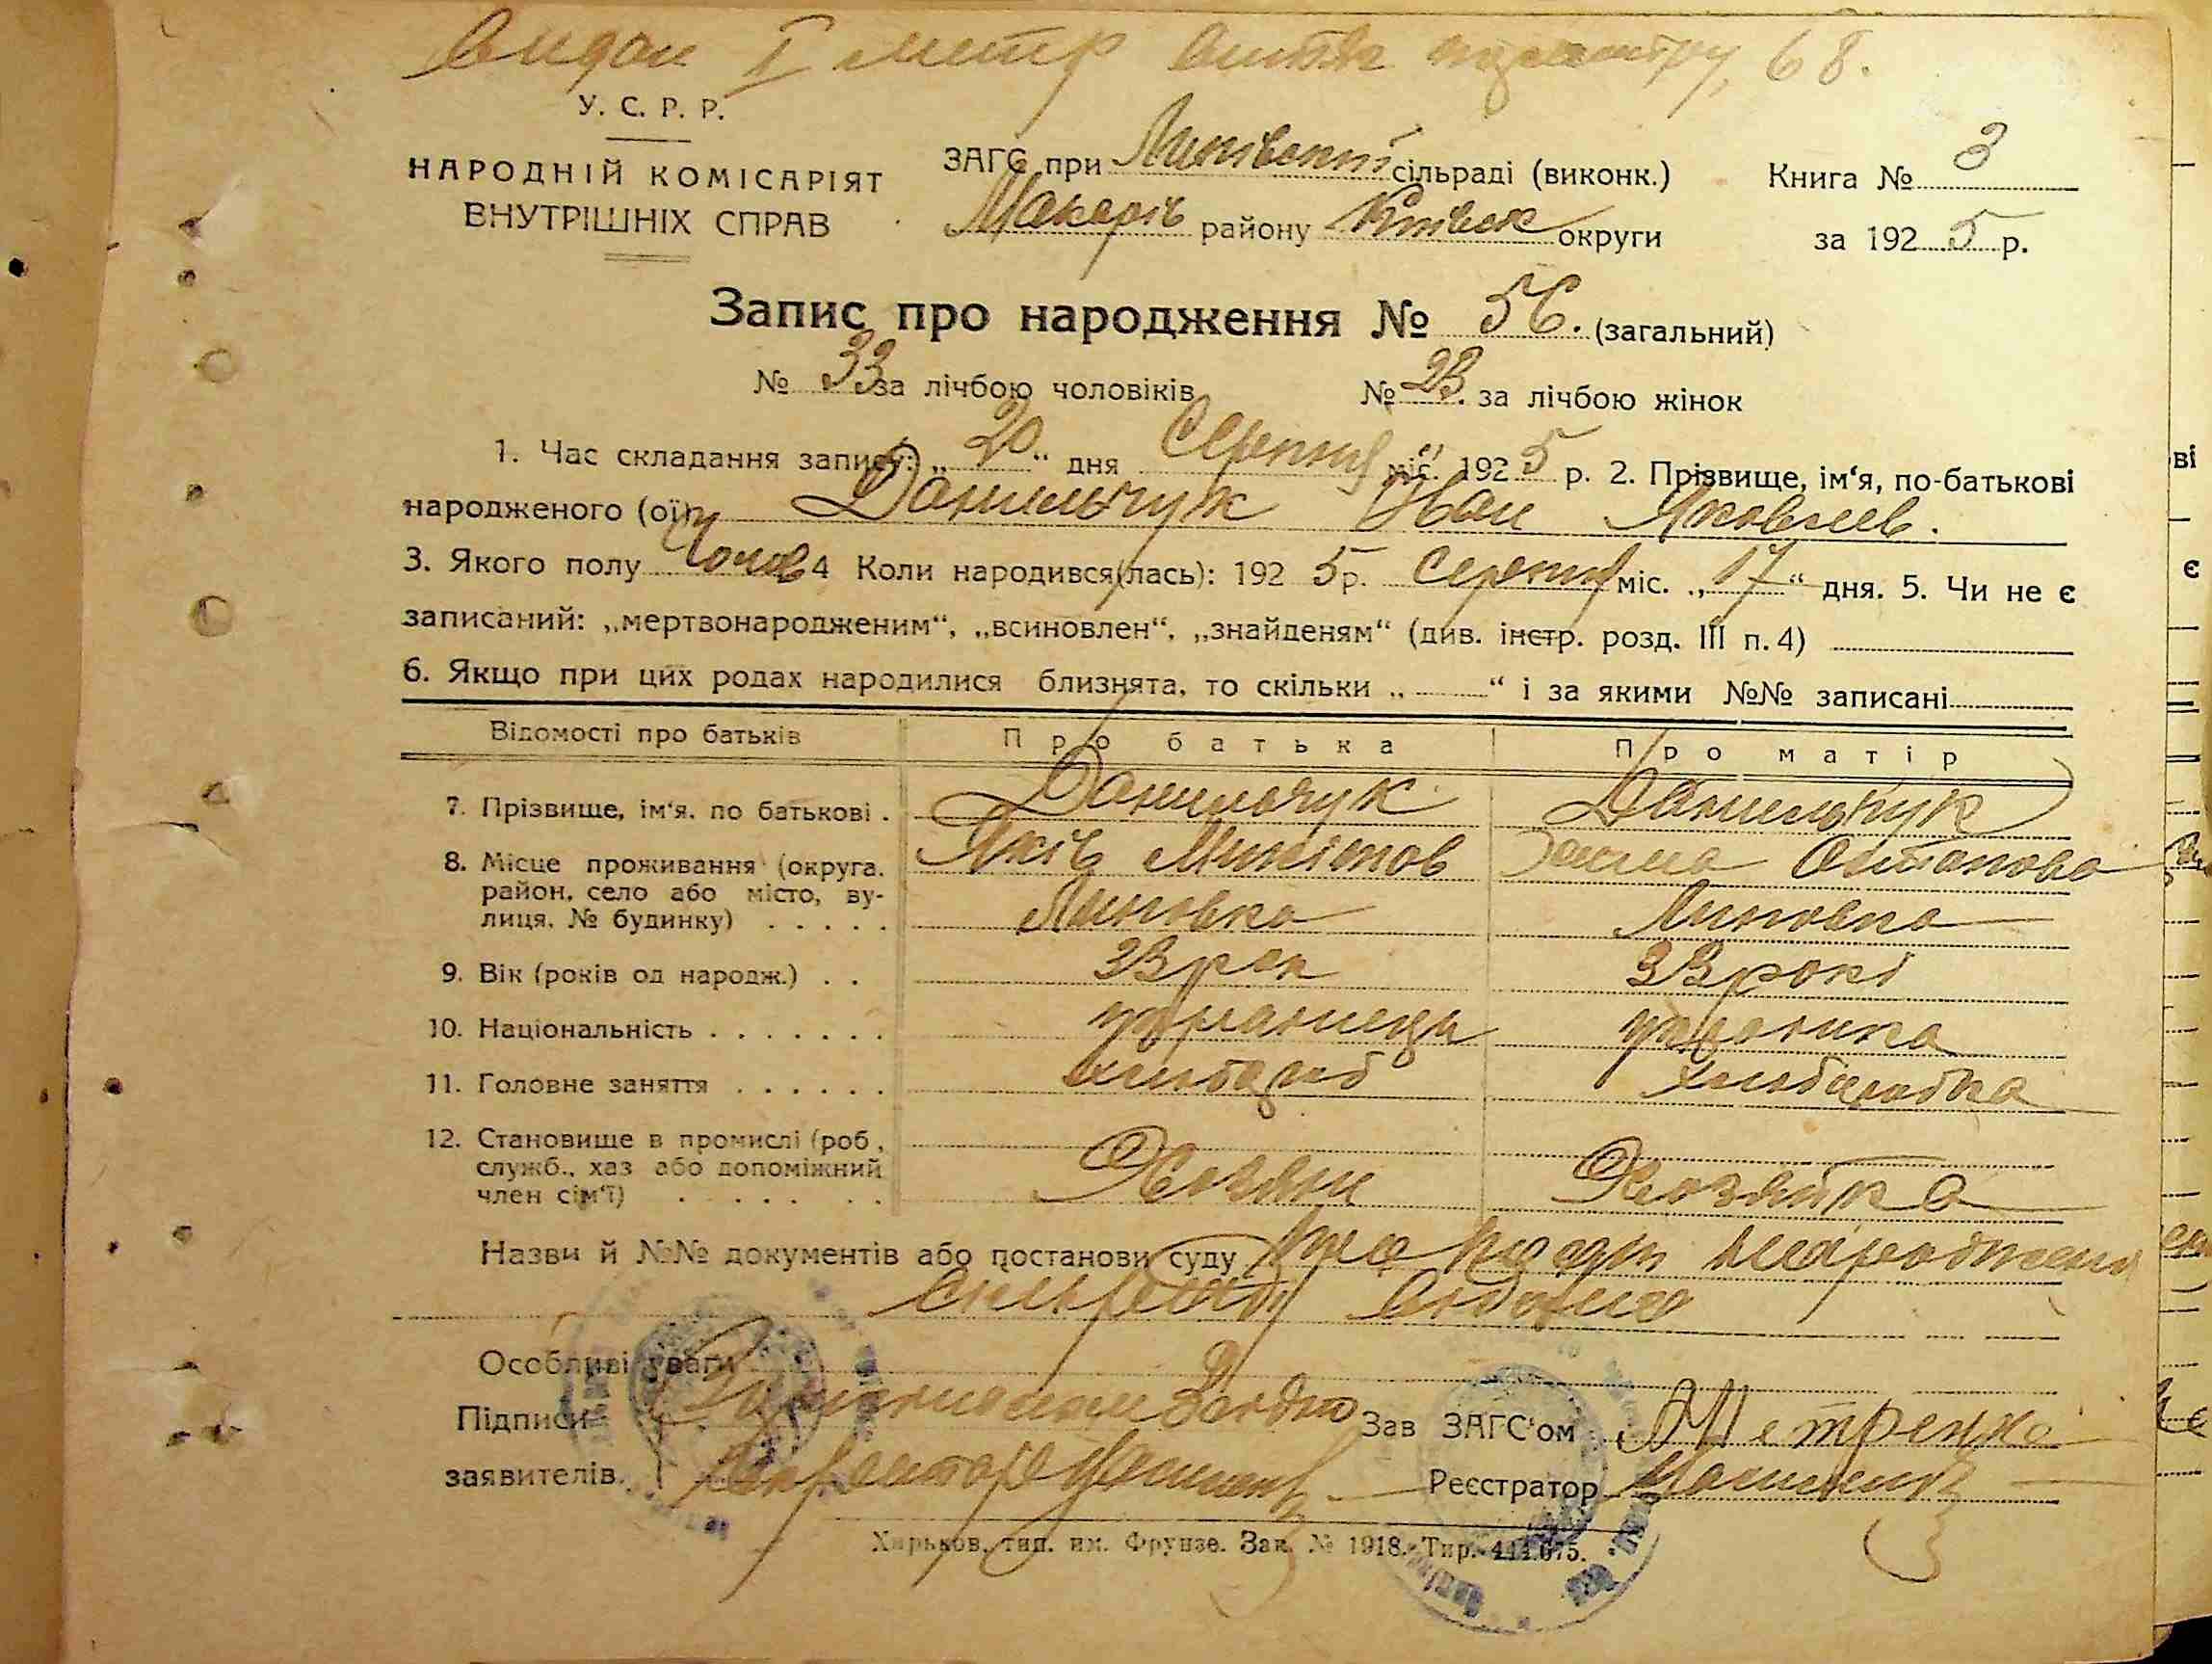 Видан І метр 68.
У. С. Р. Р.
НАРОДНІЙ КОМІСАРІЯТ
ВНУТРІШНІХ СПРАВ
ЗАГС при Липівській сільраді (виконк.)
Макарів району Київськ округи
Книга № 3
за 1925 р.
Запис про народження № 56. (загальний)
№ 33 за лічбою чоловіків № 23. за лічбою жінок
1. Час складання запису: „20“ дня Серпня міс. 1925 р. 2. Прізвище, ім‘я, по-батькові
народженого (ої) Данильчук Иван Яковлев.
3. Якого полу Чолов 4 Коли народився(лась): 1925 р. Серпня міс. „17“ дня. 5. Чи не є
записаний: „мертвонародженим“, „всиновлен“, „знайденям“ (див. інстр. розд. III п. 4)
6. Якщо при цих родах народилися близнята, то скільки „—“ і за якими №№ записані
Відомості про батьків Про батька Про матір
7. Прізвище, ім‘я, по батькові . Данильчук Данильчук
Яків Остапова
8. Місце проживання (округа,
район, село або місто, ву-
лиця, № будинку) . . . . . Липовка Липовка
9. Вік (років од народж.) . . 33 рок 33 рокі
10. Національність . . . . . . . українець українка
11. Головне заняття . . . . . . хлибороб хлиборобка
12. Становище в промислі (роб.,
служб., хаз або допоміжний
член сім‘ї) . . . . . . Хозяин Хозяйка
Назви й №№ документів або постанови суду про народження
сильради
Особливі уваги
Підписи
заявителів.
Зав ЗАГС‘ом Петренко
Реєстратор
Харьков, тип. им. Фрунзе. Зак. № 1918. Тир. 444.075.